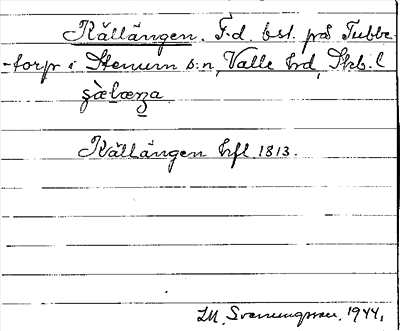 Källängen. F.d. bst. på Tubbe-
-torp i Stenum s:n, Valle hd, Skb. l
Källängen hfl 1813.
LM. Svenungsson. 1944.